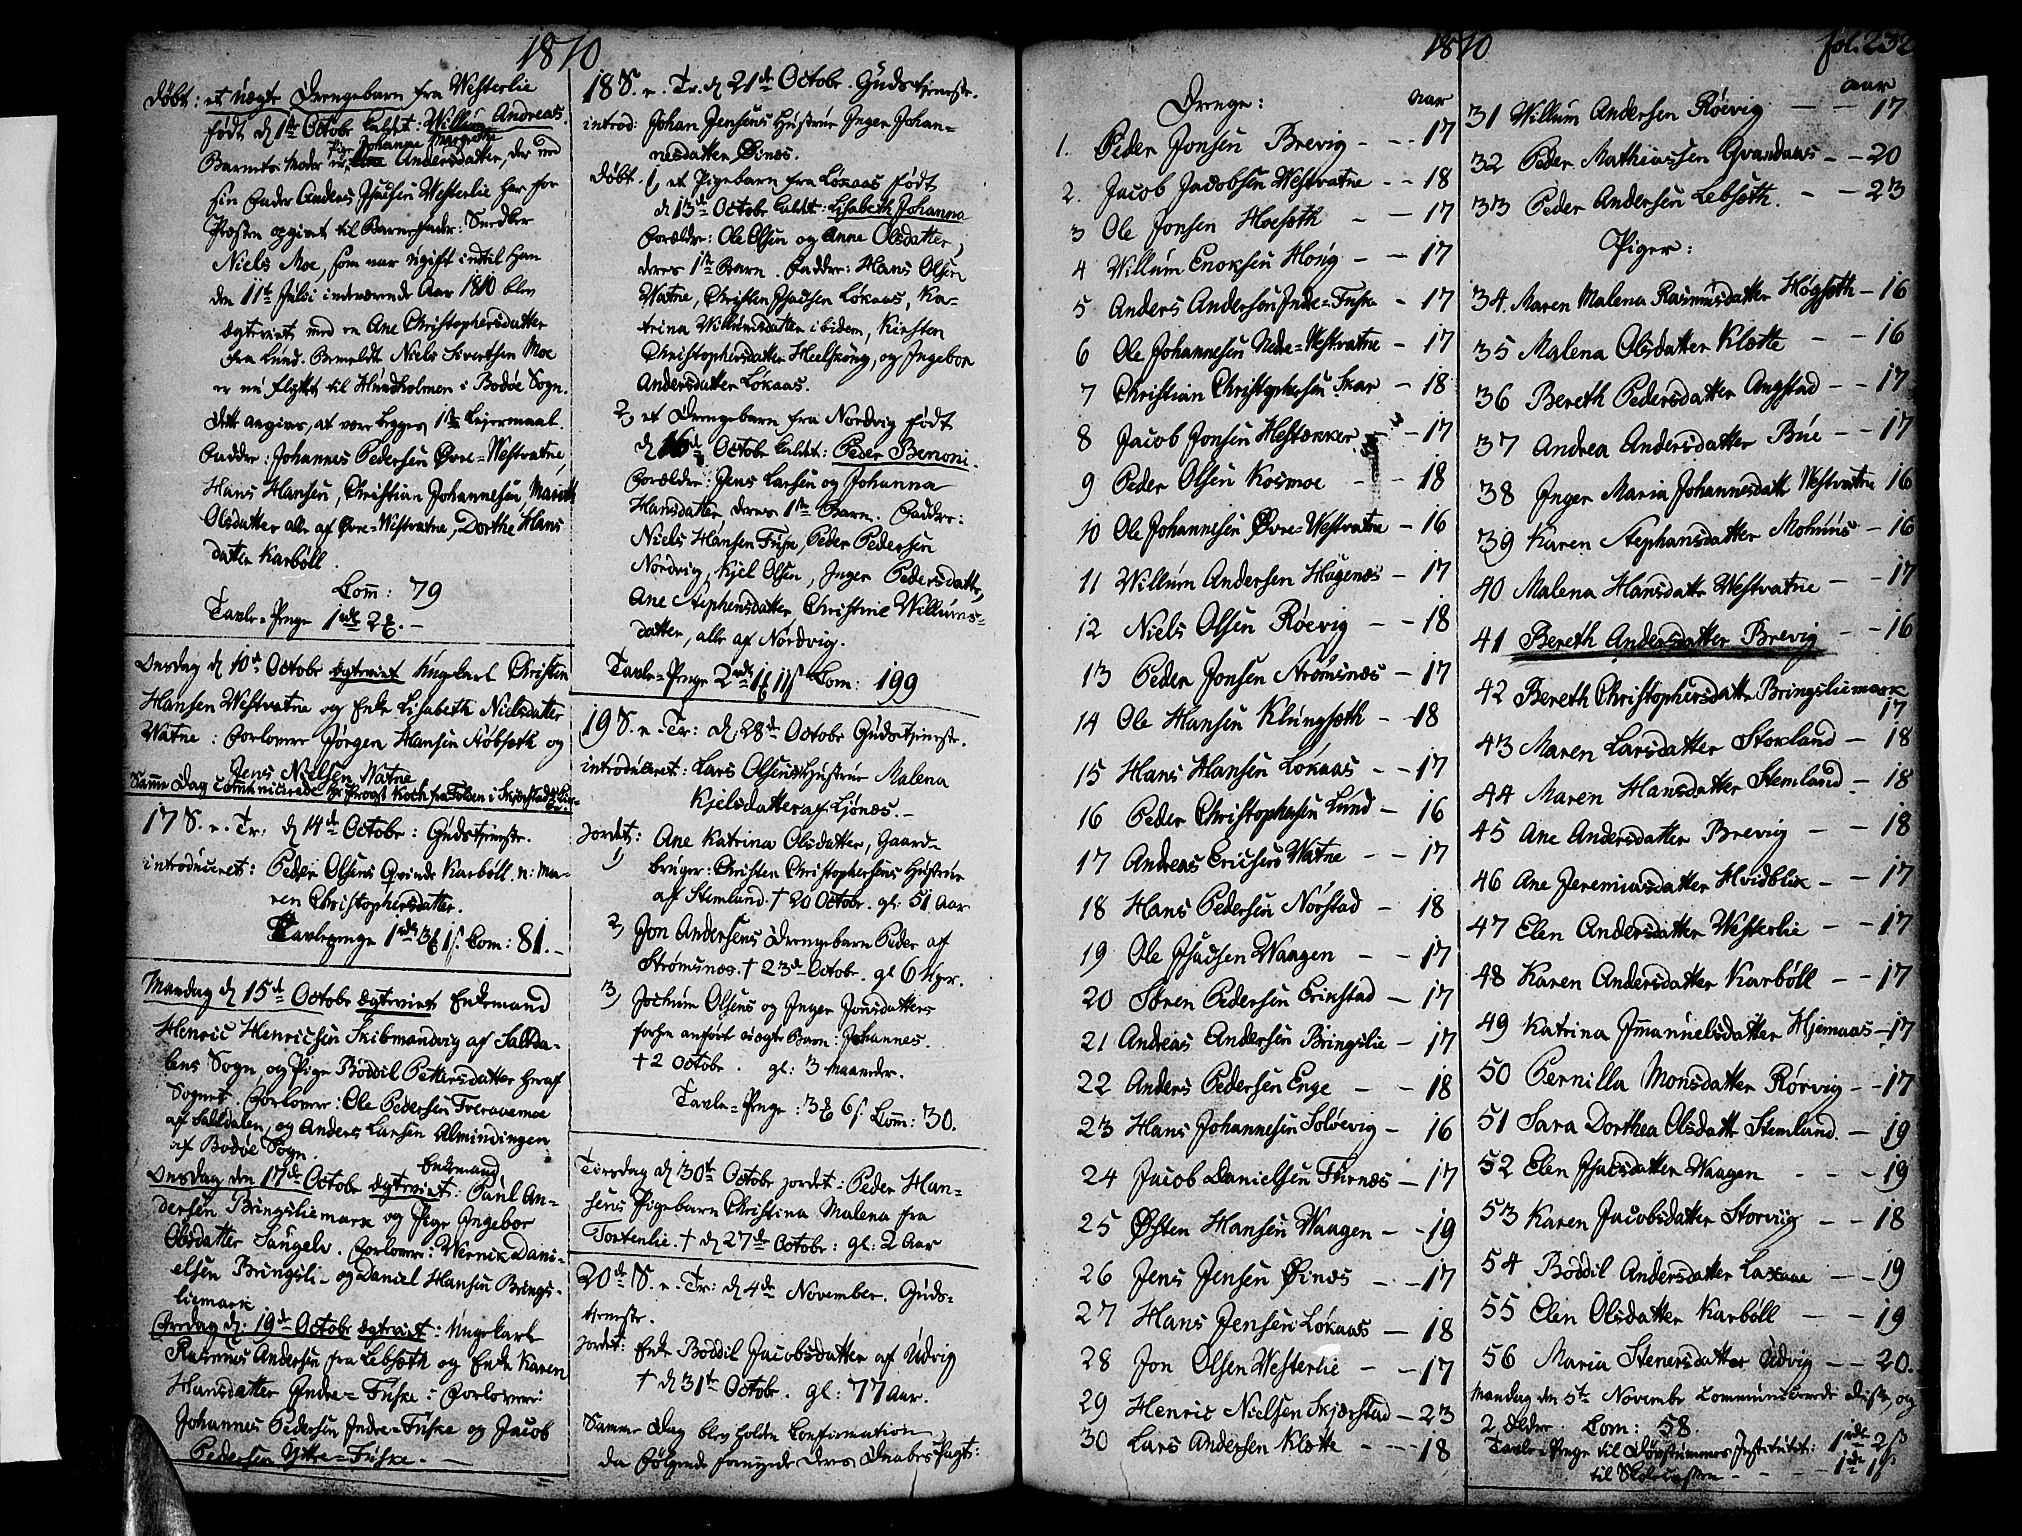 1810
Døbt: et uægte Drengebarn fra Westerlie
født d 1ste Octobr kaldet: Willum Andreas
Pige Johanna Margrete
Barnets Moder er Andersdatter, der ved
sin Fader Anders Isacsen Westerlie har for
Præsten opgivet til Barnefader: Snedker
Niels Moe, som var ugift indtil han
den 11te Julii indeværende Aar 1810 blev
ægteviet med en Ane Christophersdatter
fra Lund. Bemeldte Niels Sivertsen Moe
er nu flyttet til Hundholmen i Bodøe Sogn.
Dette angives, at være begges 1ste Lejermaal.
Faddre: Johannes Pedersen Øvre=Westvatne,
Hans Hansen, Christian Johannesen, Mareth
Olsdatter alle af Øvre=Westvatne, Dorthe Hans
datter Karbøll.
Com: 79
Tavle=Penge 1rdl 2ʒ. –
Onsdag d 10de Octobr ægteviet Ungekarl Christen
Hansen Westvatne og Enke Lisabeth Nielsdatter
Watne: Forlovere Jørgen Hansen Købseth og
Jens Nielsen Watne
Samme Dag communicerede Hr Provst Koch fra Folden i Skjerstad Kir=
17 S. e. Tr: d 14de Octobr: Gudstjeneste.
introduceret: Peder Olsens Qvinde Karbøll. n: Ma=
ren Christophersdatter.
Tavlepenge 1rdl 3ʒ 1ſ. Com: 81. –
Mandag d 15de Octobr ægteviet Enkemand
Henric Henricsen Skibmandvig af Saltda=
lens Sogn og Pige Boddil Pettersdatter heraf
Sognet. Forlovere: Ole Pedersen
af Saltdalen, og Anders Larsen Almindingen
af Bodøe Sogn.
Enkemand
Onsdag den 17de Octobr ægteviet: Paul An=
dersen Bringsliemark og Pige Ingebor
Olsdatter Laugelv. Forlovere: Wernik Dani=
elsen Bringsli= og Daniel Hansen Brings=
liemark
Fredag d: 19de Octobr ægteviet: Ungekarl
Rasmus Andersen fra Lebseth og Enke Karen
Hansdatter Indre=Fuske: Forlovere:
Johannes Pedersen Indre=Fuske og Jacob
Pedersen Yttre=Fuske. –
18 S. e. Tr. d 21de Octobr. Gudstjeneste.
introd: Johan Jensens Hustrue Inger Johan=
nesdatter Øines.
døbt. 1, et Pigebarn fra Løkaas født
d 13de Octobr kaldet: Lisabeth Johanna
Forældre: Ole Olsen og Anne Olsdatter,
deres 1ste Barn. Faddre: Hans Olsen
Watne, Christen Isacsen Løkaas, Ka=
trina Willumsdatter ibidem, Kirsten
Christophersdatter Heelskong, og Ingebor
Andersdatter Løkaas.
2, et Drengebarn fra Nordvig født
d 16de Octobr kaldet: Peder Benoni.
Forældre: Jens Larsen og Johanna
Hansdatter deres 1ste Barn. Faddre:
Niels Hansen Fuske, Peder Pedersen
Nordvig, Kjel Olsen, Inger Pedersdatter,
Ane Stephensdatter, Christine Willums=
datter, alle af Nordvig.
Tavle=Penge 2rdl 1ʒ 11ſ Com: 199
19 S. e. Tr: d 28de Octobr Gudstjeneste.
introduceret: Lars Olsens Hustrue Malena
Kjelsdatter af Ljønes. –
jordet: Ane Katrina Olsdatter, Gaard=
1) bruger: Christen Christophersens Hustrue
af Stemland. † 20 Octobr. gl: 51 Aar
2) Jon Andersens Drengebarn Peder af
Strømsnes. † 23de Octobr. gl 6 Uger.
3) Jochum Olsens og Inger Jonsdatters
forhen anført uægte Barn: Johannes.
† 2 Octobr. gl: 3 Maaneder.
Tavle=Penge: 3ʒ 6ſ. Com: 30.
Tirsdag d 30te Octobr jordet: Peder Han=
sens Pigebarn Christina Malena fra
Tortenlie. † d 27de Octobr: gl: 2 Aar
20de S. e. Tr: d 4de November. Guds=
tjeneste.
jordet: Enke Boddil Jacobsdatter af Udvig
† d 31te Octobr. gl: 77 Aar.
Samme Dag blev holden Confirmation,
da følgende fornyede deres Daabes Pagt:
1810
fol. 232
Drenge: aar
1. Peder Jonsen Brevig – – 17
2. Jacob Jacobsen Westvatne – – 18
3 Ole Jonsen Hoeseth – – 17
4 Willum Enoksen Høug – – 17
5 Anders Andersen Indre=Fuske – 17
6 Ole Johannesen Nedre=Westvatne – 17
7 Christian Christophersen Skar – 18
8 Jacob Jonsen Hestækker – – 17
9 Peder Olsen Kosmoe – – 18
10 Ole Johannesen Øvre=Westvatne – 16
11 Willum Andersen Hagenæs – 17
12 Niels Olsen Røevig – – 18
13 Peder Jonsen Strømsnæs – 17
14 Ole Hansen Klungseth – – 18
15 Hans Hansen Løkaas – – 17
16 Peder Christophersen Lund – 16
17 Andreas Ericsen Watne – – 17
18 Hans Pedersen Nørstad – 18
19 Ole Isacsen Waagen – – 17
20 Søren Pedersen Erikstad – 17
21 Andreas Andersen Bringslie – 17
22 Anders Pedersen Enge – – 18
23 Hans Johannesen Soløevig – 16
24 Jacob Danielsen Furnæs – 17
25 Østen Hansen Waagen – – 19
26 Jens Jensen Øinæs – – 17
27 Hans Jensen Løkaas – 18
28 Jon Olsen Westerlie – – 17
29 Henric Nielsen Skjærstad – 23
30 Lars Andersen Klætte – – – 18
aar
31 Willum Andersen Røevig – – 17
32 Peder Mathiassen Qvandaas – – 20
33 Peder Andersen Lebseth. – – 23
Piger:
34. Maren Malena Rasmusdatter Høgseth – 16
35 Malena Olsdatter Klætte – – 16
36 Bereth Pedersdatter Angstad – – 17
37 Andrea Andersdatter Bue – – 17
38 Inger Maria Johannesdatt Westvatne 16
39 Karen Stephansdatter Mohuus – 16
40 Malena Hansdattr Westvatne – – 17
41 Bereth Andersdatter Brevig – – 16
42 Bereth Christophersdattr Bringsliemark
17
43 Maren Larsdatter Stokland – 18
44 Maren Hansdatter Stemland – 18
45 Ane Andersdatter Brevig – – 18
46 Ane Jeremiasdatter Hvidblik – – 17
47 Elen Andersdatter Westerlie – – 17
48 Karen Andersdatter Karbøll – – 17
49 Katrina Imanuelsdatter Hjemaas – 17
50 Pernilla Monsdatter Rørvig – – 17
51 Sara Dorthea Olsdattr Stemland. – 19
52 Elen Isacsdatter Waagen – – – 19
53 Karen Jacobsdatter Storviig – – 18
54 Boddil Andersdatter Laxaae – – 19
55 Elen Olsdatter Karbøll – – 19
56 Maria Stenersdatter Udvig – – 20.
Mandag den 5te Novembr communicerede disse og
2 ældre Com: 58.
Tavle=Penge til Døvstummes Institutet: 1rdl 2ſ
til Skolecassen – – – – 1rdl 1ſ